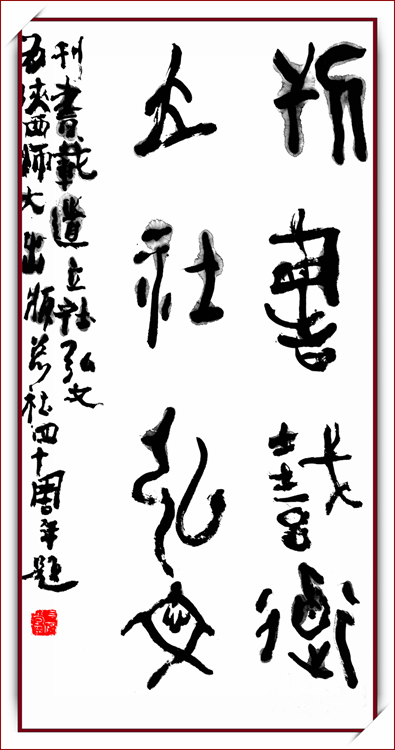 刊書載道
立社弘文
刊書載道立社弘文
为陝西師大出版总社四十周年題